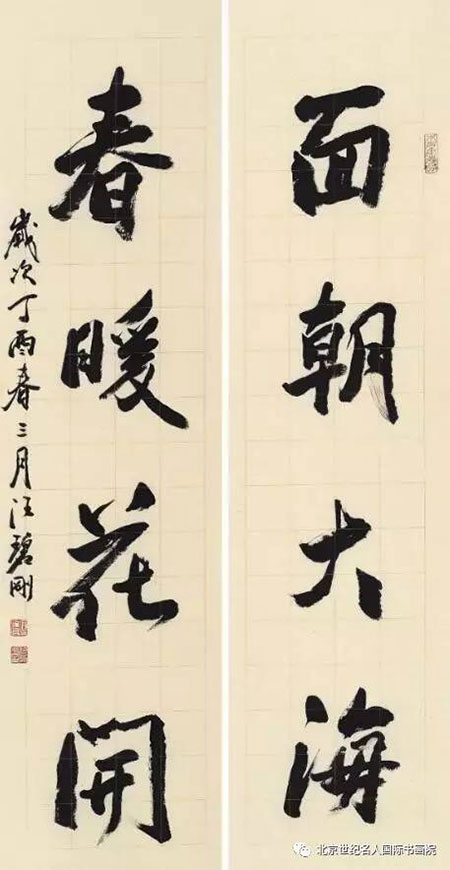 面朝大海
春暖花開
歲次丁酉春三月汪碧剛
北京世纪名人国际书画院